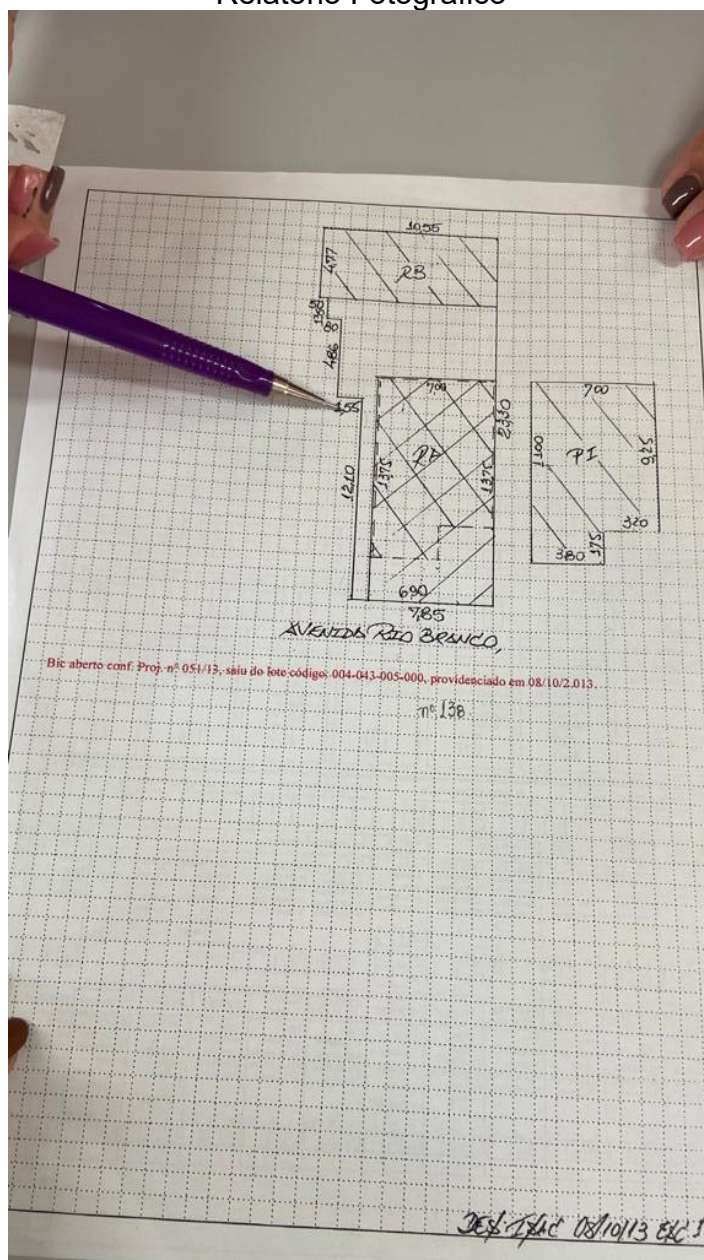 Relatório Fotográfico
1055
477
RB
50
138
80
486
1,55
700
2330
1210
1375
RA
1375
690
7,85
700
1100
PI
526
320
175
380
AVENIDA RIO BRANCO,
Bic aberto conf. Proj. nº 051/13, saiu do lote código: 004-043-005-000, providenciado em 08/10/2.013.
nº 138
08/10/13